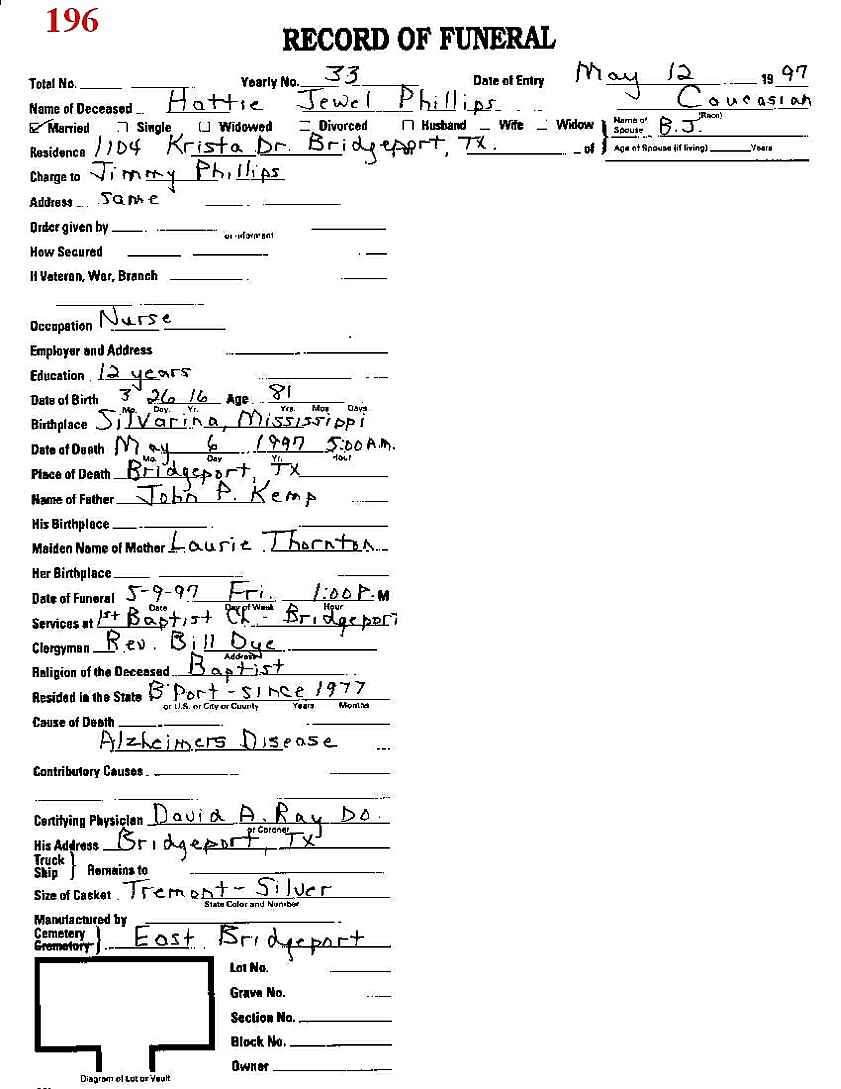 196
RECORD OF FUNERAL
Total No. Yearly No. 33 Date of Entry May 12 1997
Name of Deceased Hattie Jewel Phillips Caucasian
(Race)
Married Single Widowed Divorced Husband Wife Widow Name of Spouse B.J.
Residence 1104 Krista Dr. Bridgeport, TX. of Age of Spouse (if living) Years
Charge to Jimmy Phillips
Address same
Order given by
or informant
How Secured
If Veteran, War, Branch
Occupation Nurse
Employer and Address
Education 12 years
Date of Birth 3 26 16 Age 81
Mo. Day. Yr. Yrs. Mos Days
Birthplace Silvarina, Mississippi
Date of Death May 6 1997 5:00 A.M.
Mo. Day Yr. Hour
Place of Death Bridgeport, TX
Name of Father John P. Kemp
His Birthplace
Maiden Name of Mother Laurie Thornton
Her Birthplace
Date of Funeral 5-9-97 Fri. 1:00 P.M
Date Day of Week Hour
Services at 1st Baptist Ch - Bridgeport
Clergyman Rev. Bill Dye
Address
Religion of the Deceased Baptist
Resided in the State B'Port - since 1977
or U.S. or City or County Years Months
Cause of Death
Alzheimers Disease
Contributory Causes
Certifying Physician David A. Ray DO.
or Coroner
His Address Bridgeport, TX
Truck
Ship } Remains to
Size of Casket Tremont - Silver
State Color and Number
Manufactured by
Cemetery
Crematory } East Bridgeport
Lot No.
Grave No.
Section No.
Block No.
Owner
Diagram of Lot or Vault